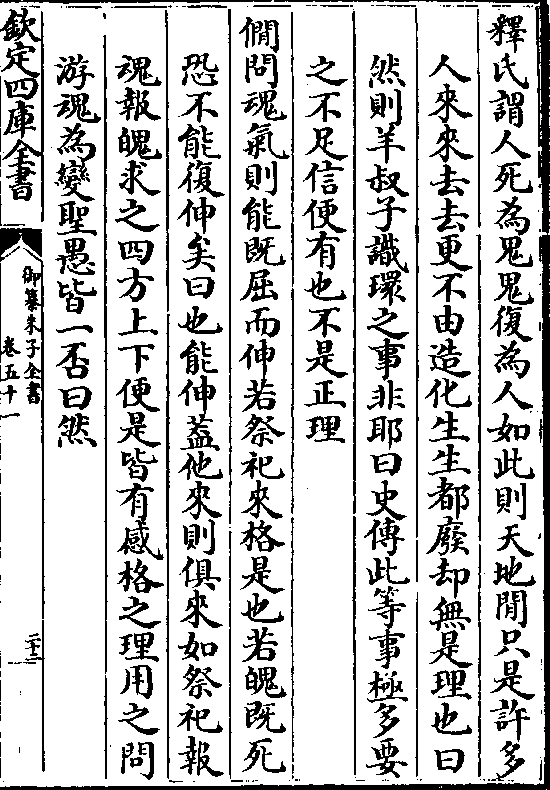 釋氏謂人死為鬼鬼復為人如此則天地閒只是許多
人來來去去更不由造化生生都廢却無是理也曰
然則羊叔子識環之事非耶曰史傳此等事極多要
之不足信便有也不是正理
僩問魂氣則能既屈而伸若祭祀來格是也若魄既死
恐不能復伸矣曰也能伸葢他來則俱來如祭祀報
魂報魄求之四方上下便是皆有感格之理用之問
游魂為變聖愚皆一否曰然
欽定四庫全書
御纂朱子全書
卷五十一
二十三